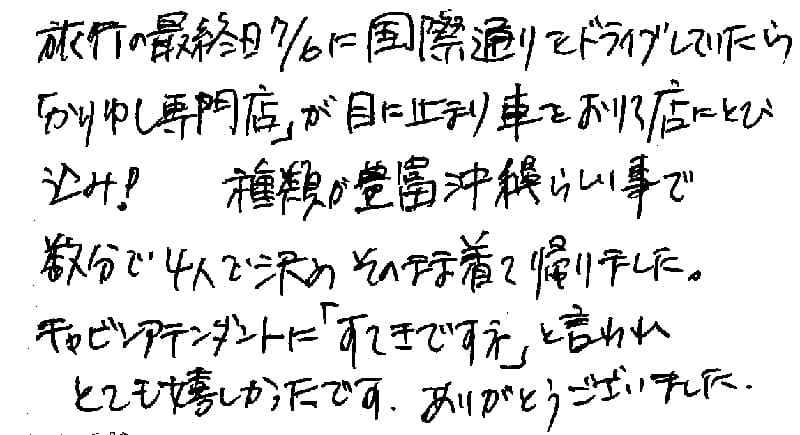 旅行の最終日7/6に国際通りをドライブしていたら
「かりゆし専門店」が目に止まり車をおりて店にとび
込み! 種類が豊富沖縄らしい事で
数分で4人で決め そのまま着て帰りました。
キャビンアテンダントに「すてきですネ」と言われ
とても嬉しかったです. ありがとうございました.